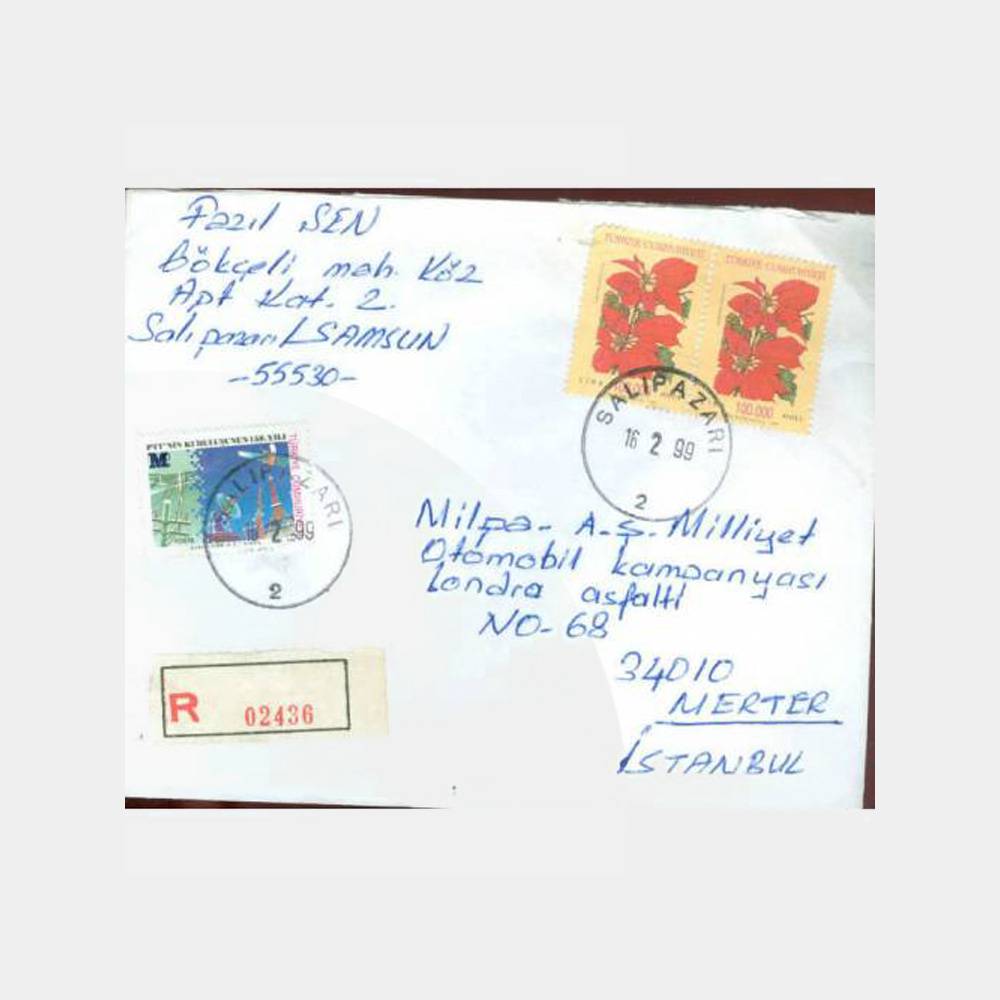 Fazıl ŞEN
Gökçeli mah. Köz
Apt Kat. 2.
Salıpazarı / SAMSUN
-55530-
TÜRKİYE CUMHURİYETİ
TÜRKİYE CUMHURİYETİ
100.000
SALIPAZARI
16 2 99
2
PTT'NİN KURULUŞUNUN 158. YILI
M
TÜRKİYE CUMHURİYETİ
SALIPAZARI
16 2 99
2
Milpa- A.Ş. Milliyet
Otomobil kampanyası
Londra asfaltı
NO- 68
34010
MERTER
İSTANBUL
R 02436